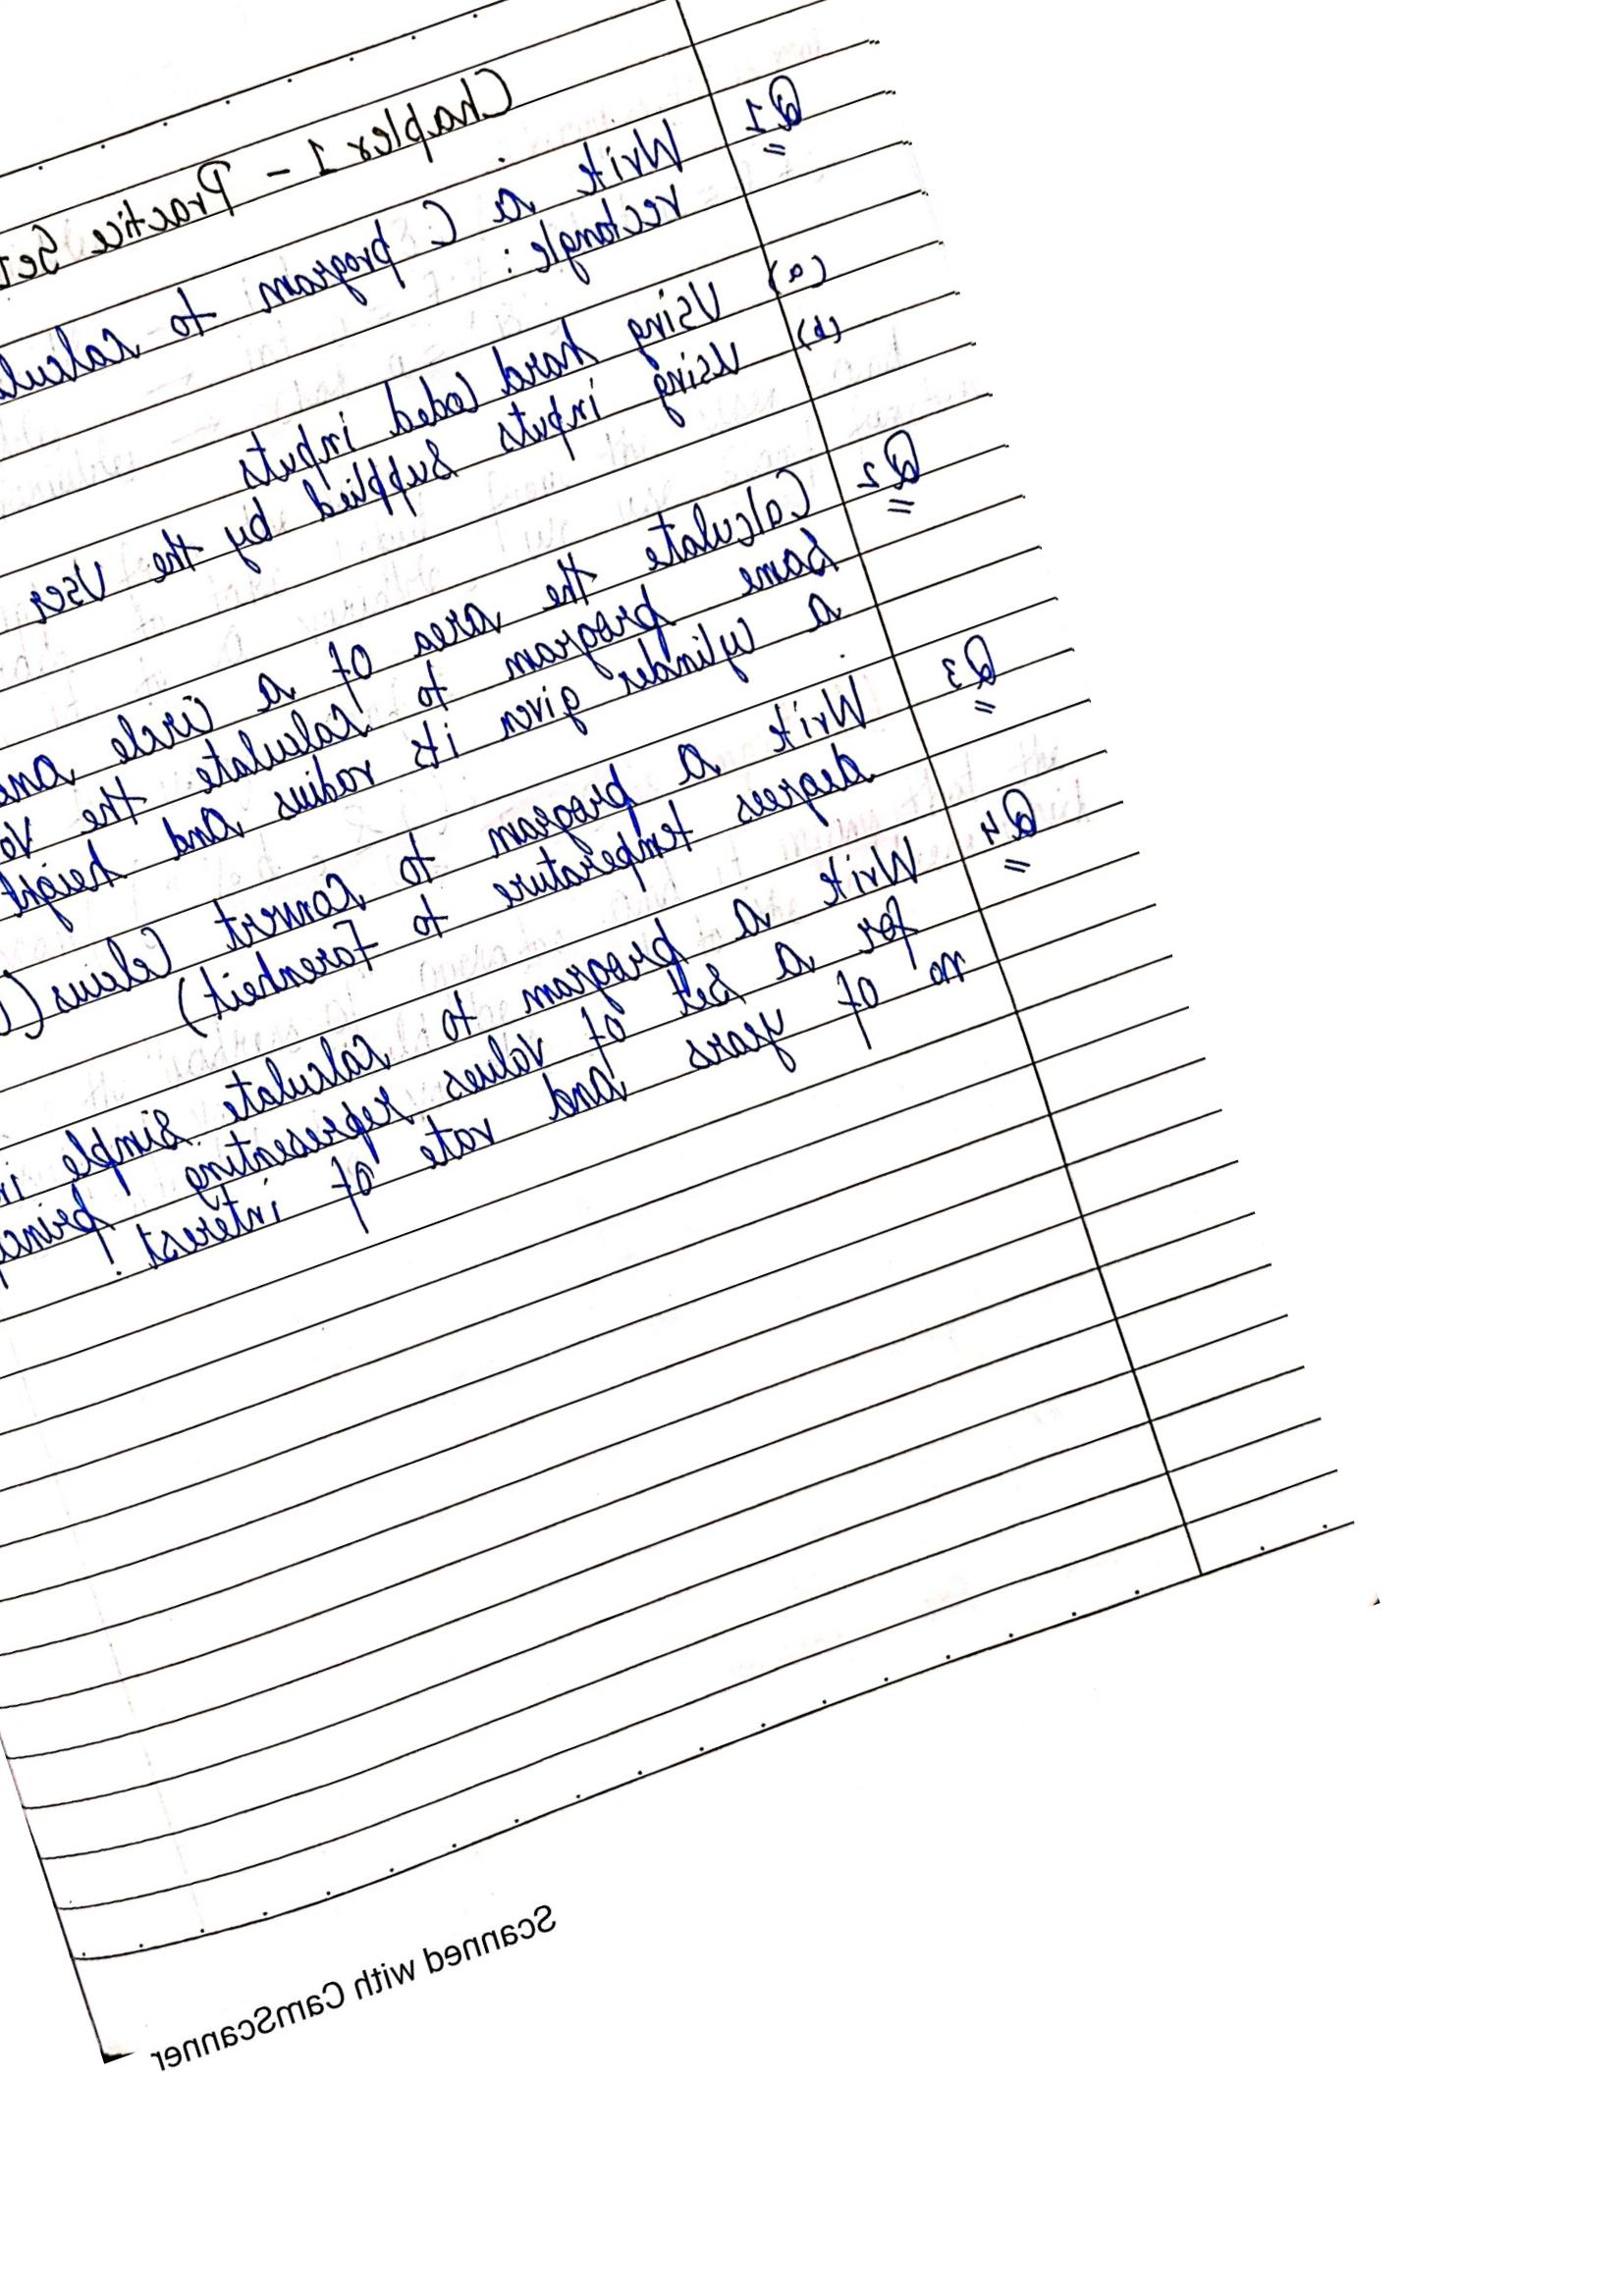 Chapter 1 - Practice Set
Q1 Write a C program to calcul
rectangle :
(a) Using hard Coded inputs
(b) Using inputs Supplied by the User
Q2 Calculate the area Of a Circle and
Same program to Calculate the Vo
a Cylinder given its radius and height
Q3 Write a program to Convert Celcius (
degrees temperature to Farenheit)
Q4 Write a program to calculate Simple in
for a Set of Values representing princ
no of years and rate of interest.
Scanned with CamScanner